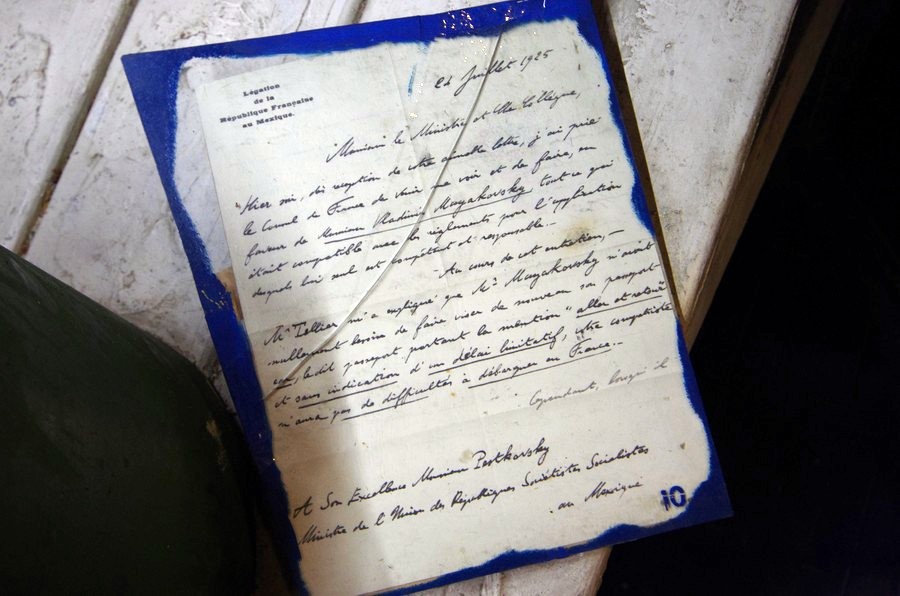 Légation
de la
République Française
au Mexique.
24 Juillet 1925
Monsieur le Ministre et cher Collègue,
Hier soir, dès réception de votre aimable lettre, j'ai prié
le Consul de France de venir me voir et de faire, en
faveur de Monsieur Vladimir Mayakovsky, tout ce qui
était compatible avec les règlements pour l'application
desquels lui seul est compétent et responsable..
Au cours de cet entretien, –
Mr Tellier m'a expliqué que Mr Mayakovsky n'avait
nullement besoin de faire viser de nouveau son passeport
car, le dit passeport portant la mention "aller et retour
et sans indication d'un délai limitatif, votre compatriote
n'aura pas de difficultés à débarquer en France...
Cependant, lorsqu'il
A Son Excellence Monsieur Pestkovsky
Ministre de l'Union des Républiques Soviétistes Socialistes
au Mexique
10